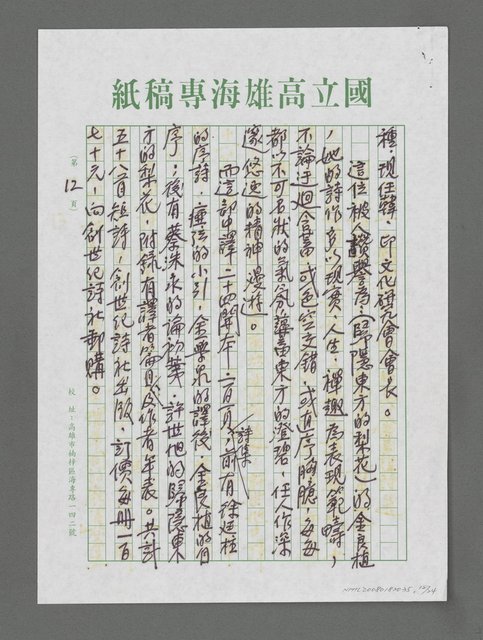 國立高雄海專稿紙
種,現任韓、印文化研究會會長。
這位被人讚譽為〈歸隱東方的梨花〉的金良植
,她的詩作多以現實、人生、禪趣為表現範疇,
不論迂迴含蓄,或色空交錯,或直序胸臆,每每
都以不可名狀的氣氛,蘊蓄東方的澄碧,任人作深
邃悠遠的精神漫遊。
而這部中譯二十四開本,二百頁,詩集前有徐廷柱
的序詩,瘂弦的小引,金學泉的譯後,金良植的自
序;後有蔡洙永的論初箋,許世旭的歸隱東
方的梨花,附錄有譯者簡見及作者年表。共計
五十八首短詩,創世紀詩社出版,訂價每冊一百
七十元,向創世紀詩社郵購。
(第 12 頁)
校 址:高雄市楠梓區海專路一四二號
NMTL20080180035,12/24